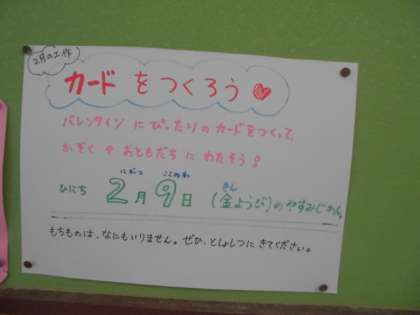 2月の工作
カードをつくろう♥
バレンタインにぴったりのカードをつくって、
かぞくやおともだちにわたそう!
にがつ ここのか きん
ひにち 2月9日 (金ようび)のやすみじかん
もちものは、なにもいりません。ぜひ、としょしつにきてください。